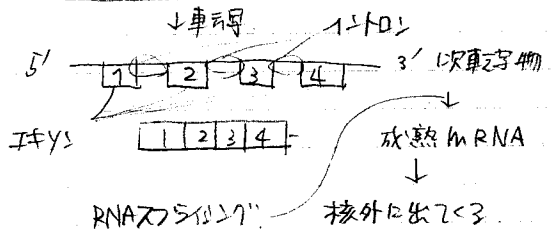 ↓転写
イントロン
5' 1 2 3 4 3' 1次転写物
エキソン
1 2 3 4
↓
成熟mRNA
↓
RNAスプライシング
核外に出てくる